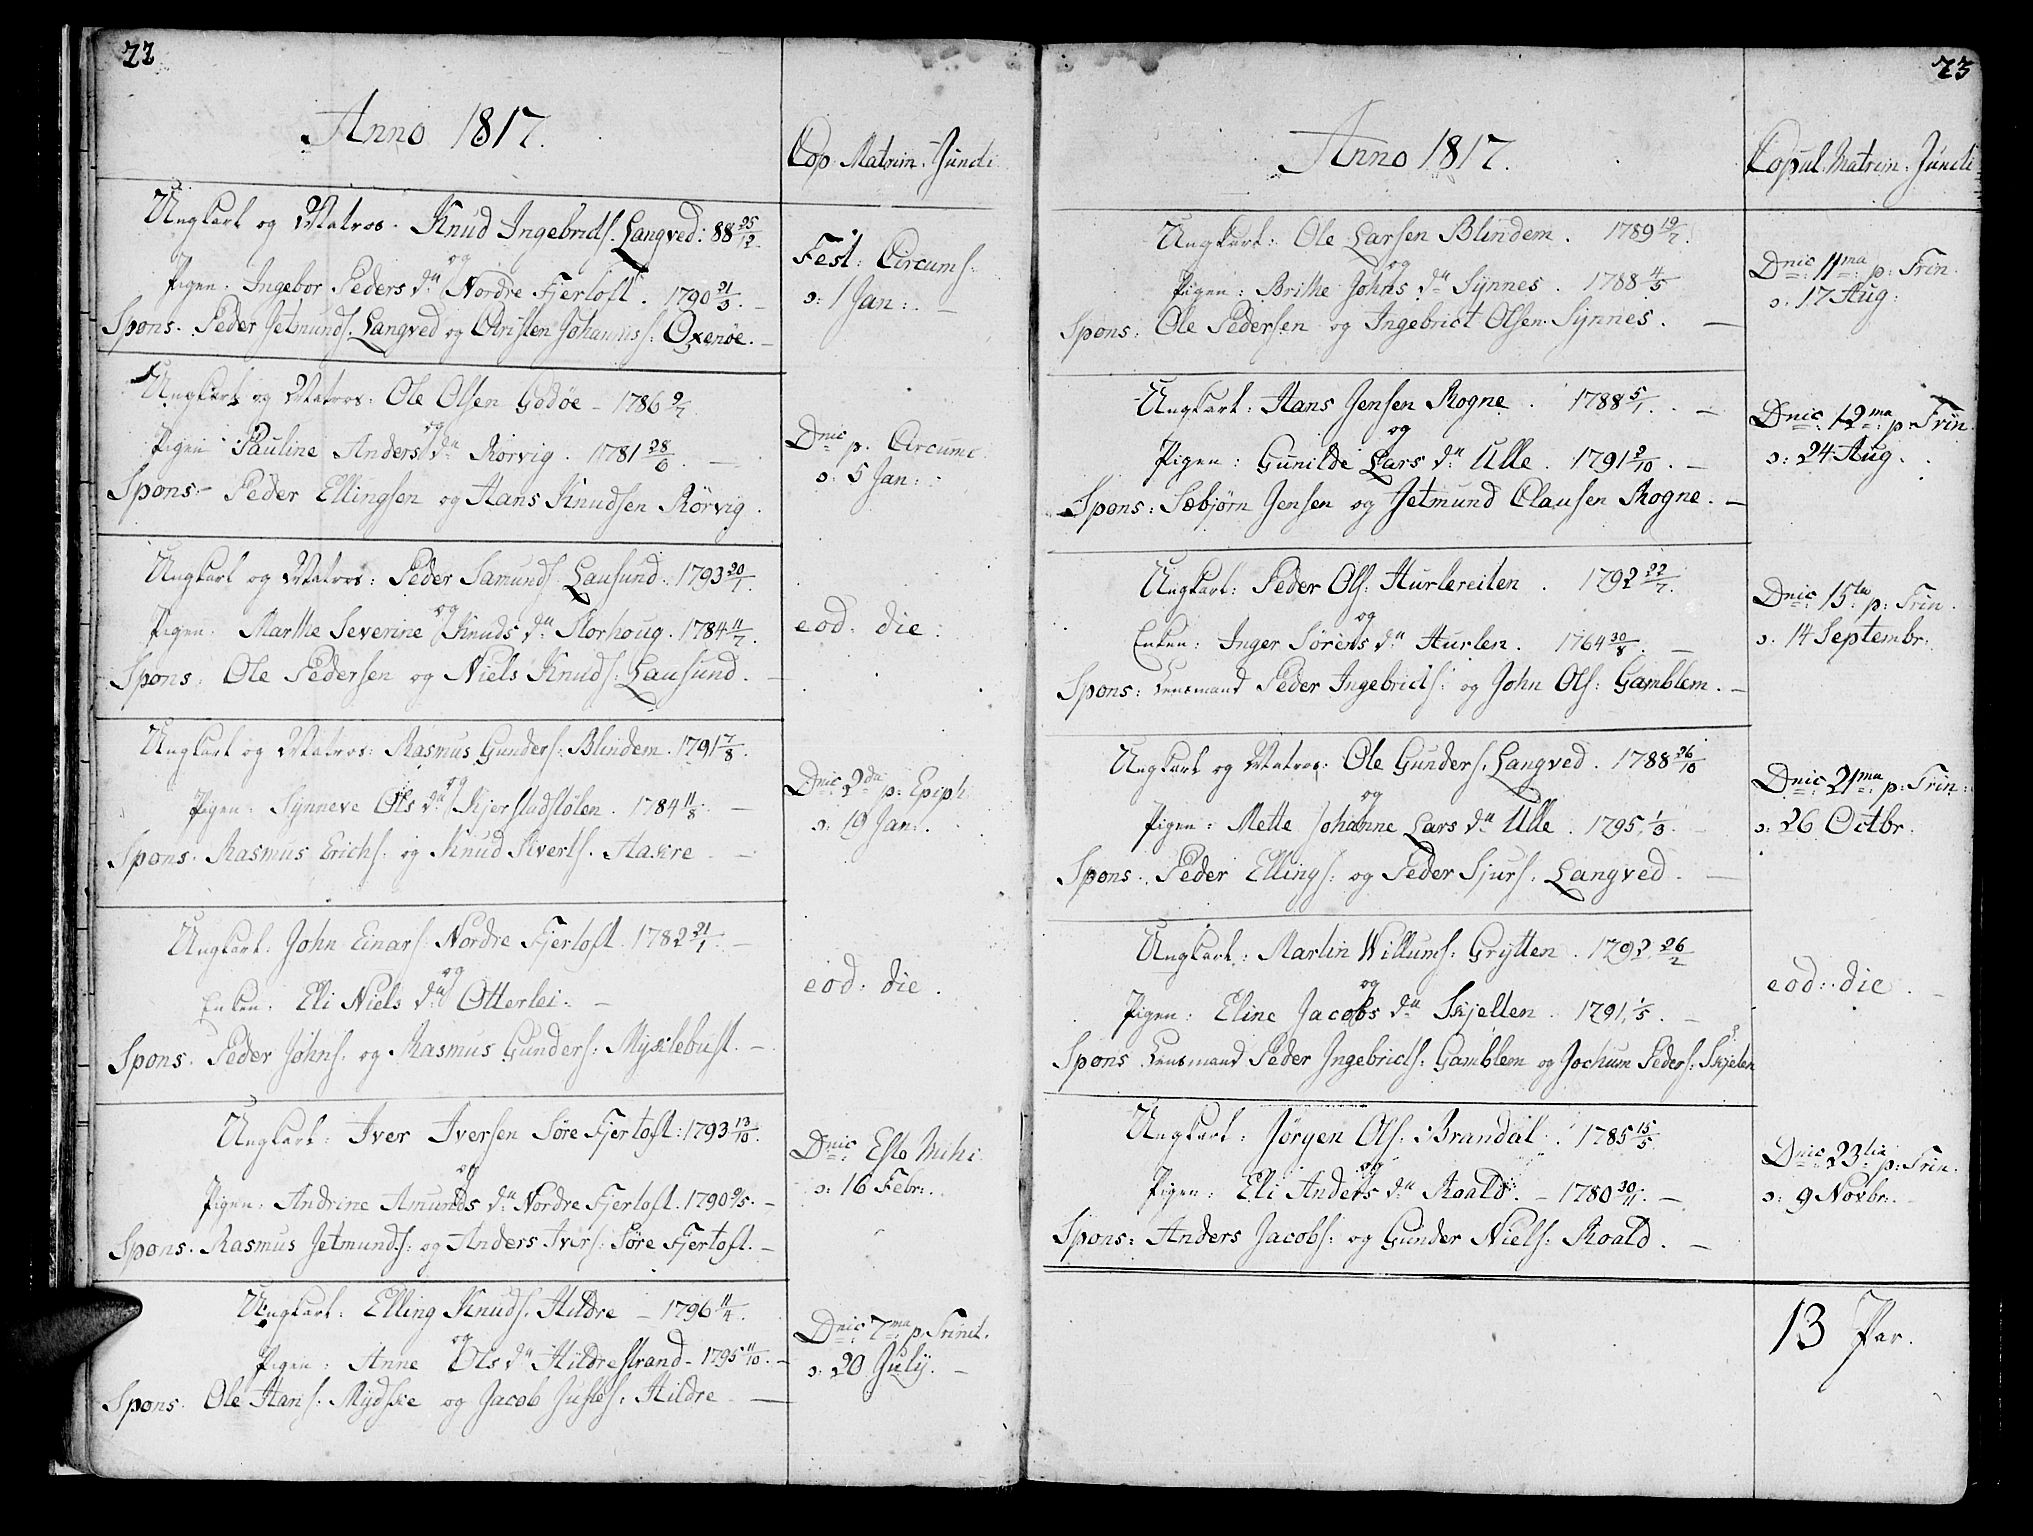 22
Anno 1817.
Cop: Matrim: Juncti
Ungkarl og Matros. Knud Ingebrids. Langved: 88 25/12.
og
Pigen. Ingebor Peders dr Nordre Fjertoft. 1790 21/3. —
Spons. Peder Jetmunds. Langved og Christen Johanniss: Oxenøe. —
Fest: Circums:
ɔ: 1 Jan: —
Ungkarl og Matros: Ole Olsen Godøe – 1786 9/7
og
Pigen Pauline Anders dr Rørvig. 1781 28/6. —
Spons: Peder Ellingsen og Hans Knudsen Rörvig.
Dnic p. Circumc.
ɔ: 5 Jan:
Ungkarl og Matros: Peder Samunds. Lausund. 1793 20/1.
og
Pigen. Marthe Severine Knuds dr Storhoug. 1784 11/7.
Spons: Ole Pedersen og Niels Knuds: Lausund. —
eod: die:
Ungkarl og Matros: Rasmus Gunders: Blindem. 1791 7/8.
og
Pigen: Synneve Ols dr Kjerstadstölen. 1784 11/8. —
Spons. Rasmus Erichs. og Knud Siverts. Aakre —
Dnic 2da p: Epiph.
ɔ: 19 Jan:
Ungkarl. John Einars: Nordre Fjertoft. 1782 21/1. —
og
Enken. Eli Niels dr Otterlei: —
Spons. Peder Johns. og Rasmus Gunders: Myklebust. —
eod: die.
Ungkarl: Iver Iversen Söre Fjertoft: 1793 13/10.
og
Pigen: Andrine Amunds dr Nordre Fjertoft. 1790 9/5. —
Spons. Rasmus Jetmunds: og Anders Ivers: Söre Fjertoft. —
Dnic: Esto Mihi.
ɔ: 16 Febr:.
Ungkarl: Elling Knuds. Hildre – 1796 11/4.
og
Pigen: Anne Ols dr Hildrestrand – 1795 11/10. —
Spons. Ole Hans. Mydske og Jacob Justes: Hildre —
Dnic: 7ma p Trinit.
ɔ: 20 July. —
23
Anno 1817.
Copul: Matrim: Juncti
Ungkarl: Ole Larsen Blindem. 1789 19/7.
og
Pigen: Brithe Johns dr Synnes. 1788 4/5
Spons: Ole Pedersen og Ingebrict Olsen Synnes. —
Dnic: 11ma p: Trin.
ɔ: 17 Aug:
Ungkarl: Hans Jensen Rogne. 1788 5/1. —
og
Pigen: Gunilde Lars dr Ulle. 1791 2/10. —
Spons: Sæbjørn Jensen og Jetmund Clausen Rogne. —
Dnic: 12ma p: Trin.
ɔ: 24 Aug.
Ungkarl: Peder Ols: Hurlereiten. 1792 22/7.
og
Enken: Inger Sørens dr Hurlen. 1764 30/8. —
Spons: Lensmand Peder Ingebricts: og John Ols: Gamblem. —
Dnic: 15ta p: Trin.
ɔ. 14 Septembr:
Ungkarl og Matros: Ole Gunders. Langved. 1788 26/10
og
Pigen: Mette Johanne Lars dr Ulle. 1795. 1/3. —
Spons. Peder Ellings: og Peder Sjurs: Langved. —
Dnic: 21ma p: Trin:
ɔ: 26 Octbr.
Ungkarl: Martin Willums: Grytten. 1792 26/2
og
Pigen: Eline Jacobs dr Skjelten. 1791. 1/5. —
Spons Lensmand Peder Ingebricts: Gamblem og Jochum Peders: Skjelten
eod: die. —
Ungkarl: Jørgen Ols: Brandal. 1785 15/5.
og
Pigen: Eli Anders dr Roald. – 1780 30/11. —
Spons: Anders Jacobs: og Gunder Niels: Roald. —
Dnic: 23tia p: Trin.
ɔ: 9 Novbr: —
13 Par.